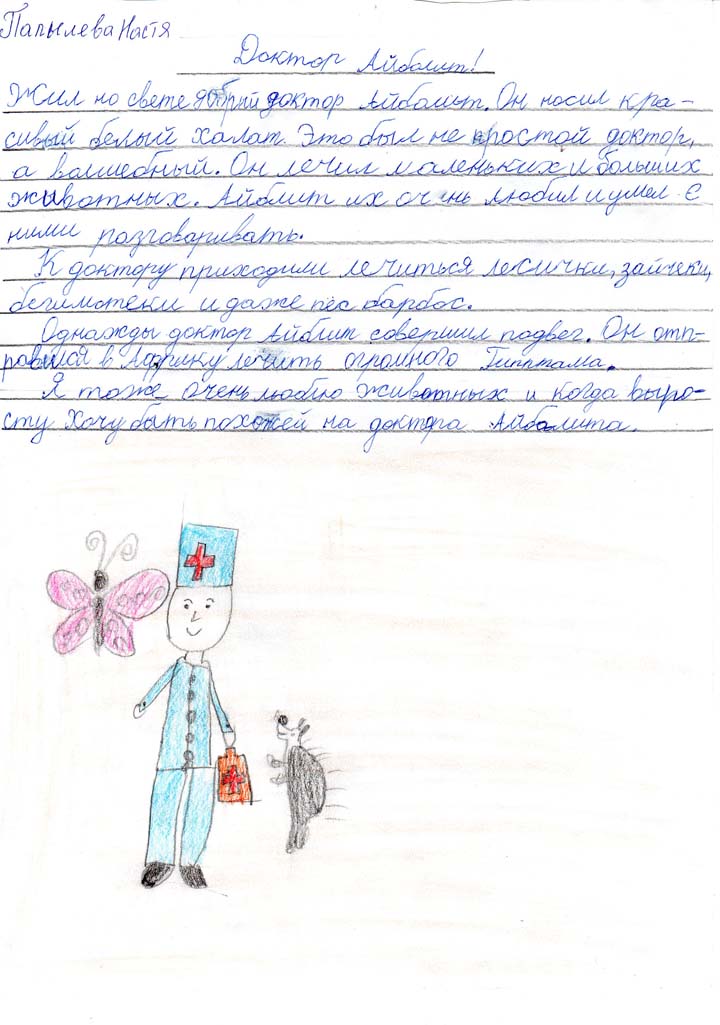 Папылева Настя
Доктор Айболит!
Жил но свете добрий доктор Айболит. Он носил кра-
сивый белый халат. Это был не простой доктор,
а волшебный. Он лечил маленьких и больших
животных. Айблит их очень любил и умел с
ними розговаривать.
К доктору приходили лечиться лесички, зайчеки,
бегимотеки и даже пёс барбос.
Однажды доктор Айблит совершил подвег. Он отп-
равился в Африку лечить огромного Гипптама.
Я тоже очень люблю животных и когда выро-
сту хочу быть похожей на доктора Айболита.